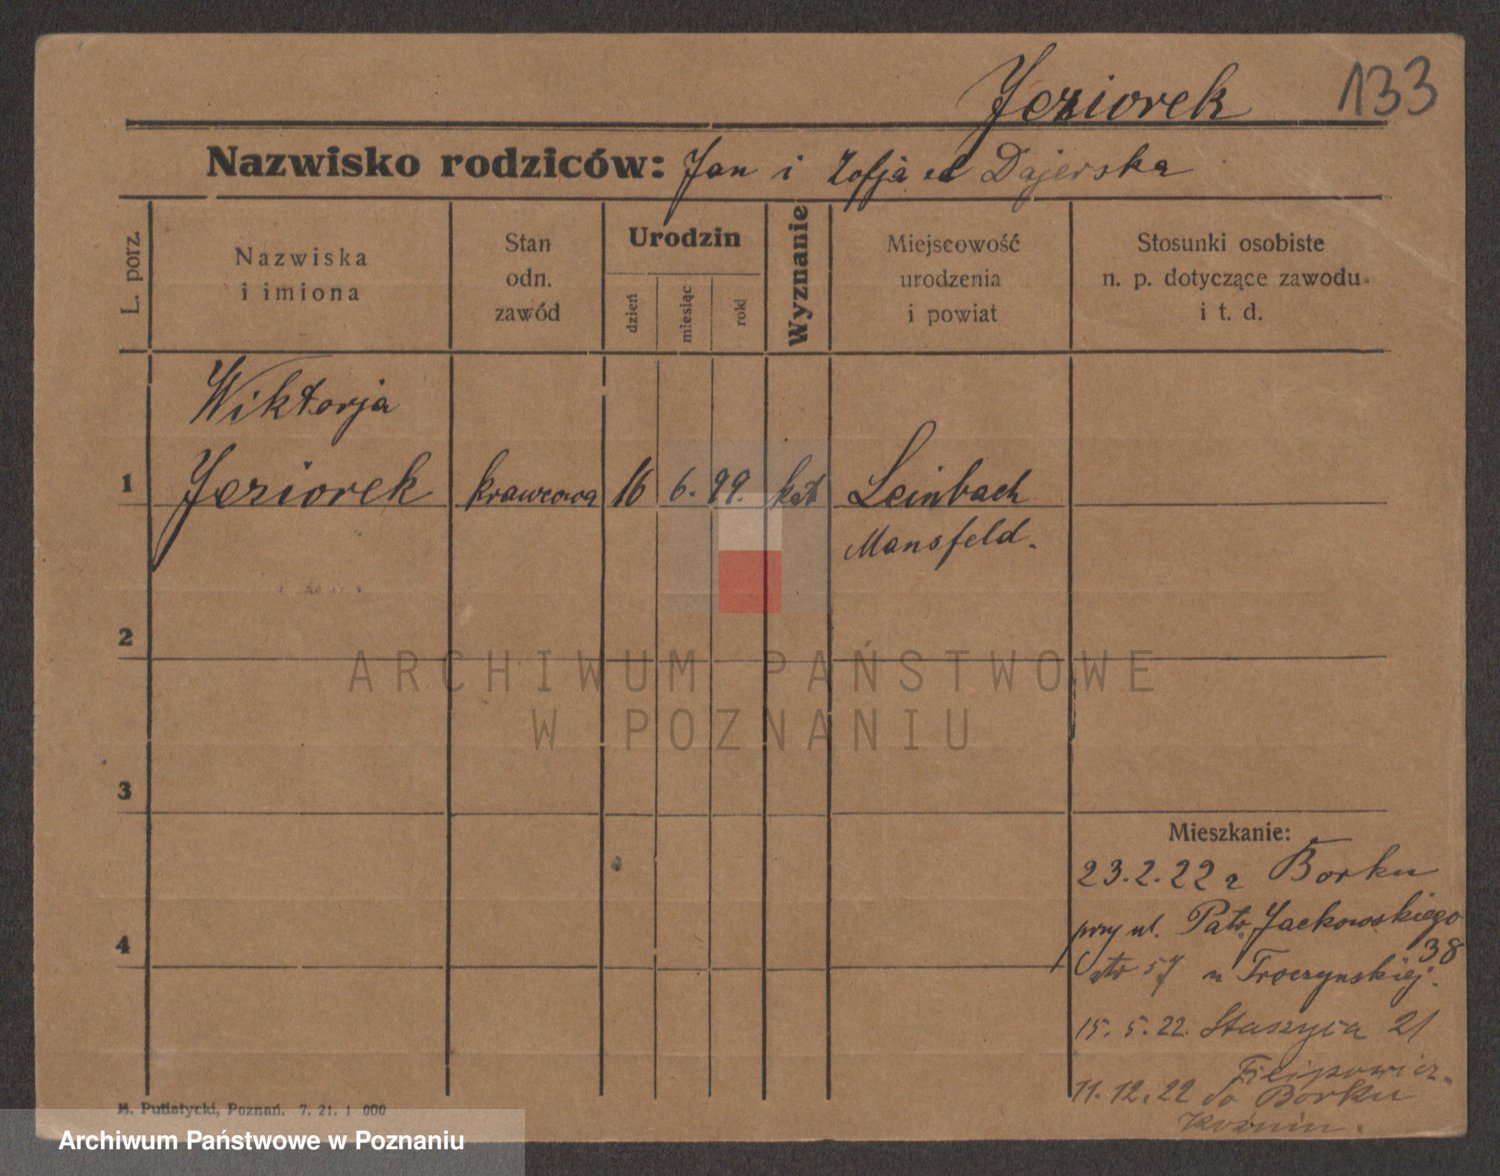 Jeziorek 133
Nazwisko rodziców: Jan i Zofja Dajerska
L. porz.
Nazwiska
i imiona
Stan
odn.
zawód
Urodzin
dzień
miesiąc
rok
Wyznanie
Miejscowość
urodzenia
i powiat
Stosunki osobiste
n. p. dotyczące zawodu
i t. d.
Wiktorja
1 Jeziorek krawcowa 16 6. 99. kat Leinbach
Mansfeld.
2
ARCHIWUM PAŃSTWOWE
W POZNANIU
3
Mieszkanie:
23.2.22 z Borku
przy ul. Patr. Jackowskiego
38
4
u Troczynskiej.
15. 5. 22. Staszyca 21
Filipowicz.
11.12.22 do Borku
Koźmin.
M. Putiatycki, Poznań. 7. 21. 1 000
Archiwum Państwowe w Poznaniu